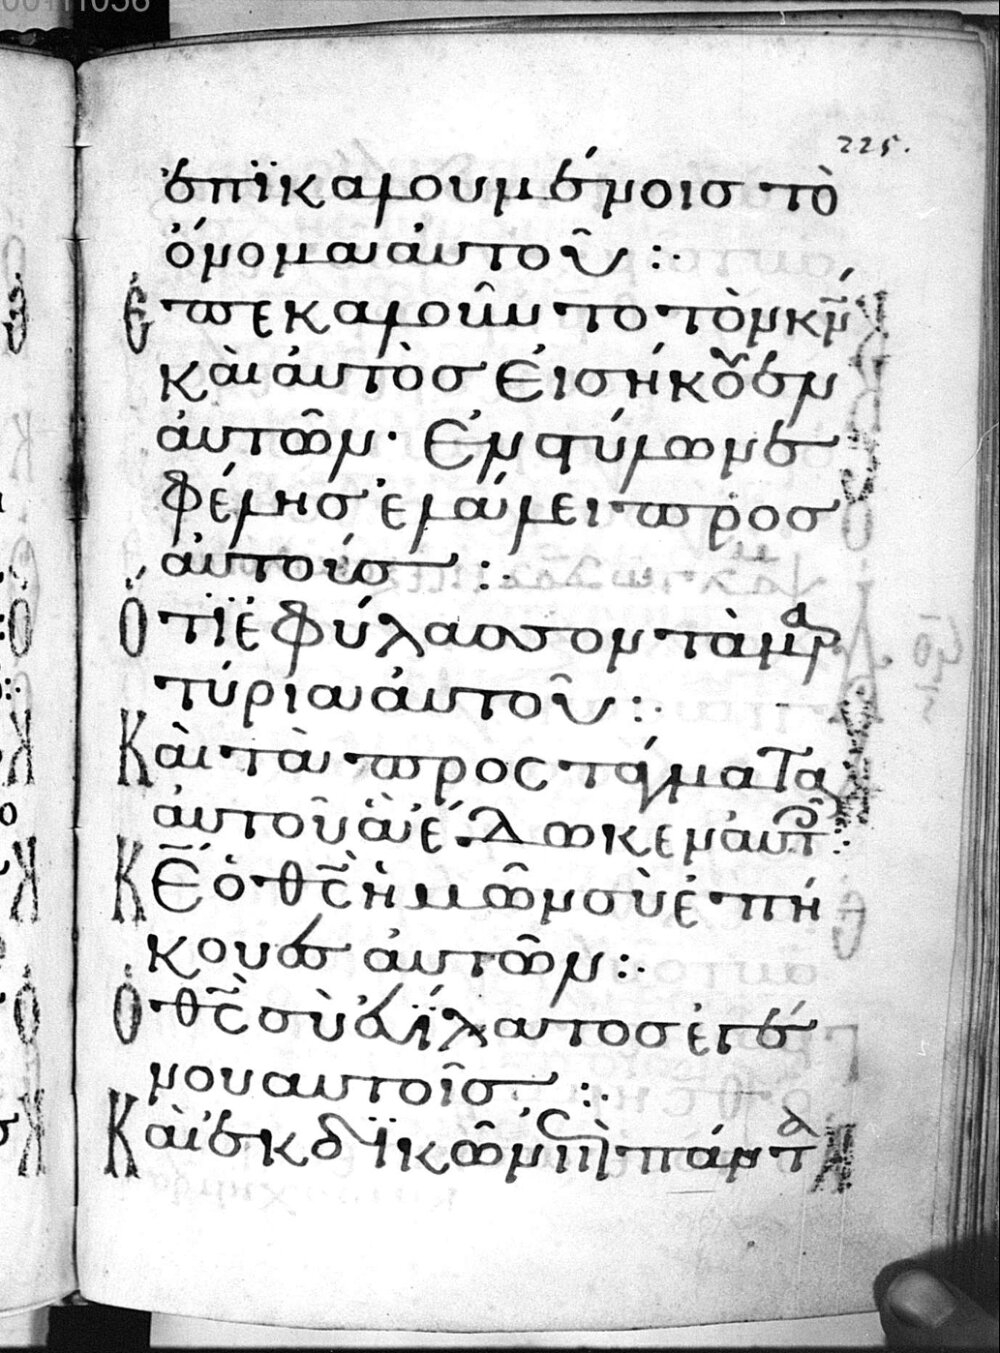 225.
ἐπϊκαλουμένοισ τὸ
ὄνομα αὐτοῦ :·
Ἐπεκαλοῦντο τὸν κν̄
καὶ αὐτὸσ εἰσήκουεν
αὐτῶν· Ἐν στύλω νε
φέλησ ἐλάλει προσ
αὐτούσ :·
Ὅτϊ ἐφύλασσον τὰ μαρ
τύρια αὐτοῦ :·
Καὶ τὰ προστάγματα
αὐτοῦ ἃ ἔδωκεν αὐτοῖσ :
Κε̄ ὁ θς̄ ἡμῶν σὺ ἐπή
κουεσ αὐτῶν :·
Ὁ θς̄ σὺ εὐΐλατοσ ἐγέ
νου αυτοῖσ :·
Καὶ ἐκδϊκῶν ἐπὶ πάντα